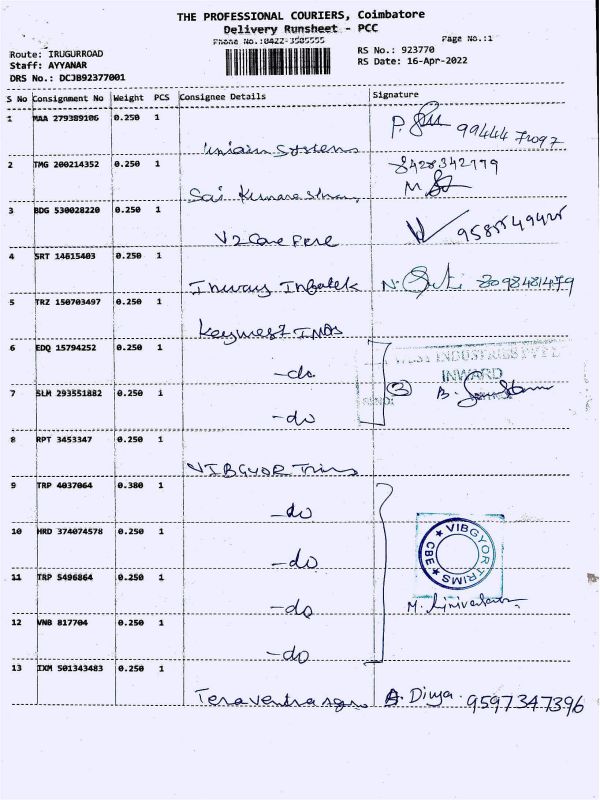 THE PROFESSIONAL COURIERS, Coimbatore
Delivery Runsheet - PCC
Phone No.:0422-3505555
Page No.:1
Route: IRUGURROAD
Staff: AYYANAR
DRS No.: DCJB92377001
RS No.: 923770
RS Date: 16-Apr-2022
S No Consignment No Weight PCS Consignee Details Signature
1 MAA 279389106 0.250 1
P. 99444 71097
Systems
2 TMG 200214352 0.250 1
8428342779
Sai
M
3 BDG 530028220 0.250 1
V2 Care
4 SRT 14615403 0.250 1
Inway Infotek N. 8098481479
5 TRZ 150703497 0.250 1
Keywest INDS
6 EDQ 15794252 0.250 1
-do
WEST INDUSTRIES PVT L
INWARD
7 SLM 293551882 0.250 1
2 B.
-do
8 RPT 3453347 0.250 1
VIBGYOR Trims
9 TRP 4037064 0.380 1
-do
10 HRD 374074578 0.250 1
-do
VIBGYOR TRIMS ★ CBE ★
11 TRP 5496864 0.250 1
-do
M.
12 VNB 817704 0.250 1
-do
13 IXM 501343483 0.250 1
A. Divya. 9597347396